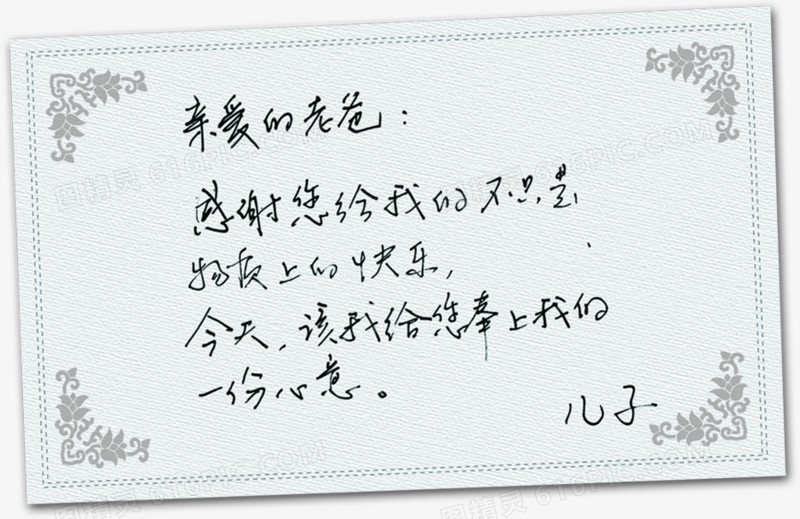 亲爱的老爸：
感谢您给我的不只是
物质上的快乐，
今天，该我给您奉上我的
一份心意。
儿子
图精灵 616PIC.COM